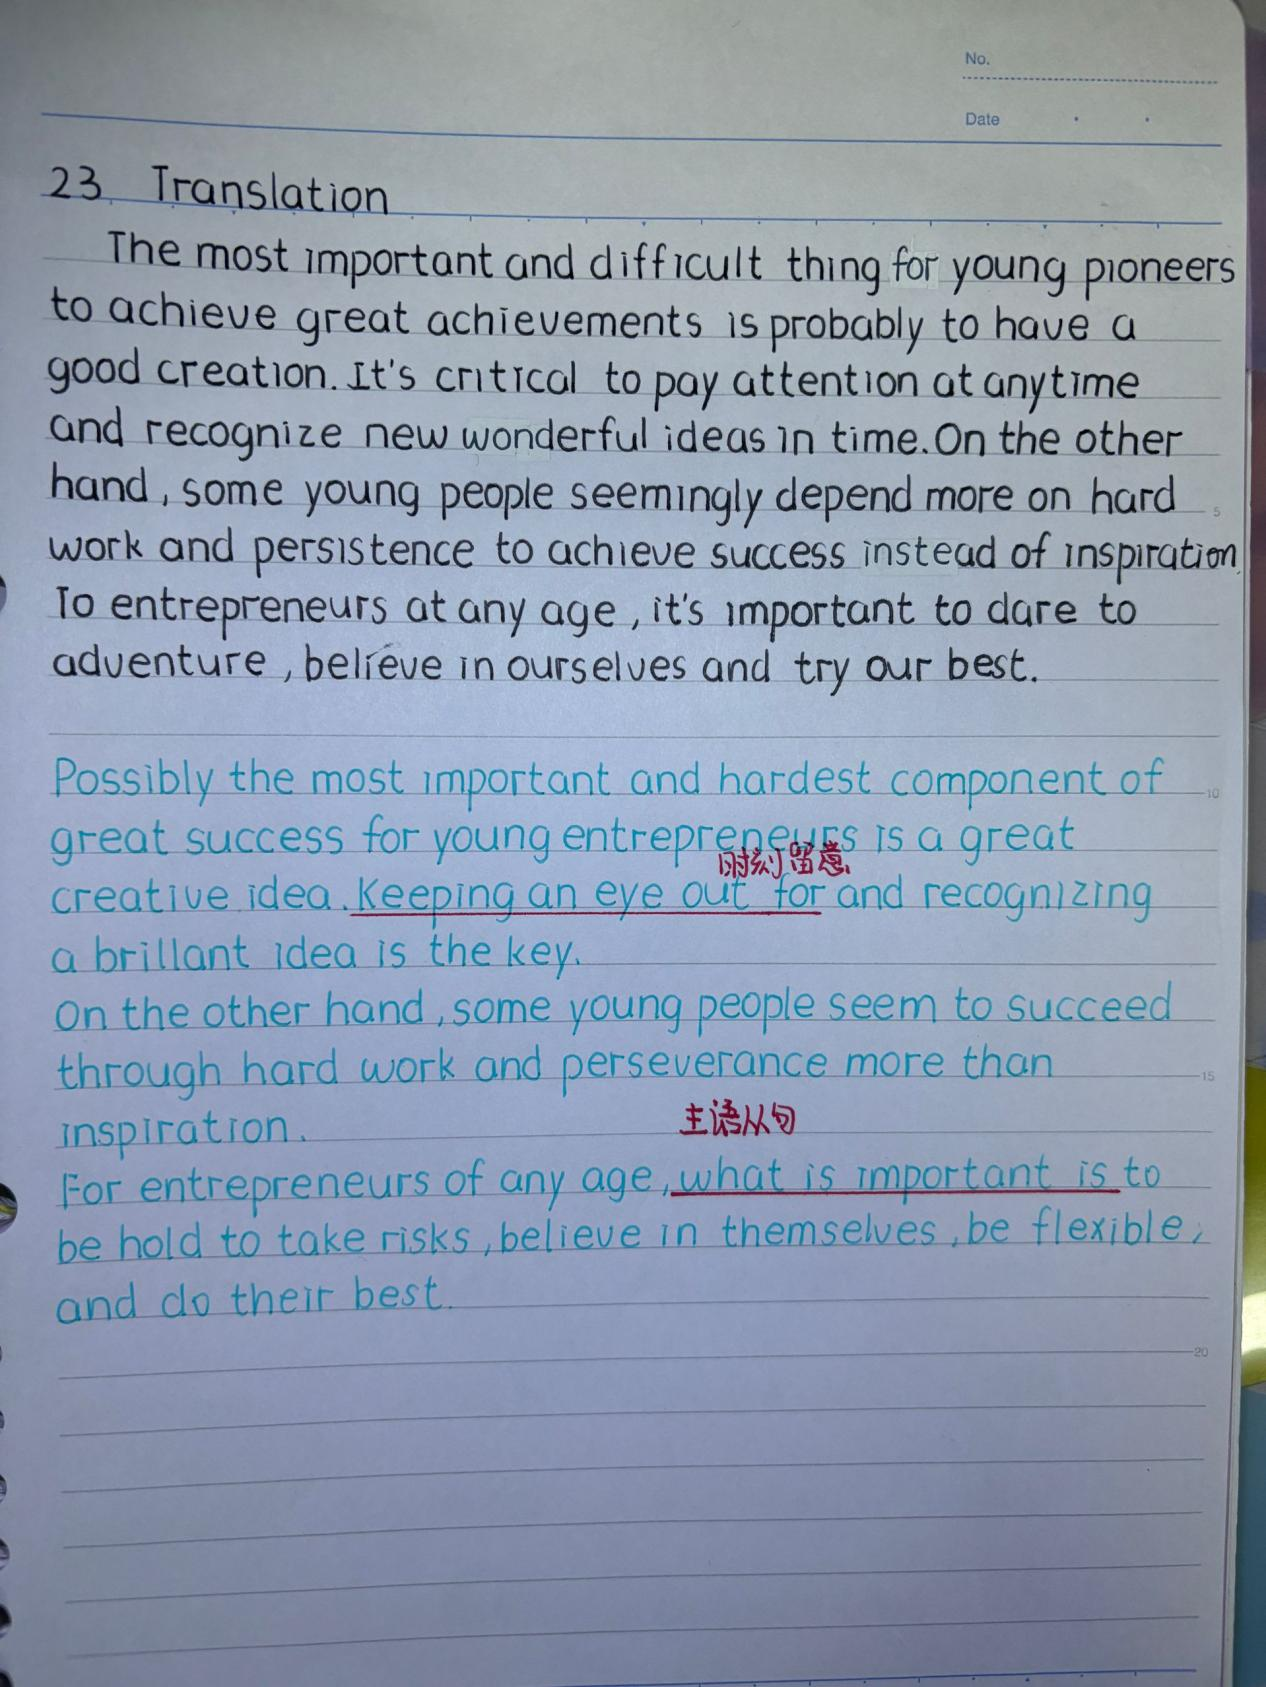 No.
Date
23. Translation
The most important and difficult thing for young pioneers
to achieve great achievements is probably to have a
good creation. It's critical to pay attention at anytime
and recognize new wonderful ideas in time. On the other
hand, some young people seemingly depend more on hard
5
work and persistence to achieve success instead of inspiration.
To entrepreneurs at any age, it's important to dare to
adventure, believe in ourselves and try our best.
Possibly the most important and hardest component of
10
great success for young entrepreneurs is a great
时刻留意
creative idea. Keeping an eye out for and recognizing
a brillant idea is the key.
On the other hand, some young people seem to succeed
through hard work and perseverance more than
15
inspiration.
主语从句
For entrepreneurs of any age, what is important is to
be hold to take risks, believe in themselves, be flexible,
and do their best.
20